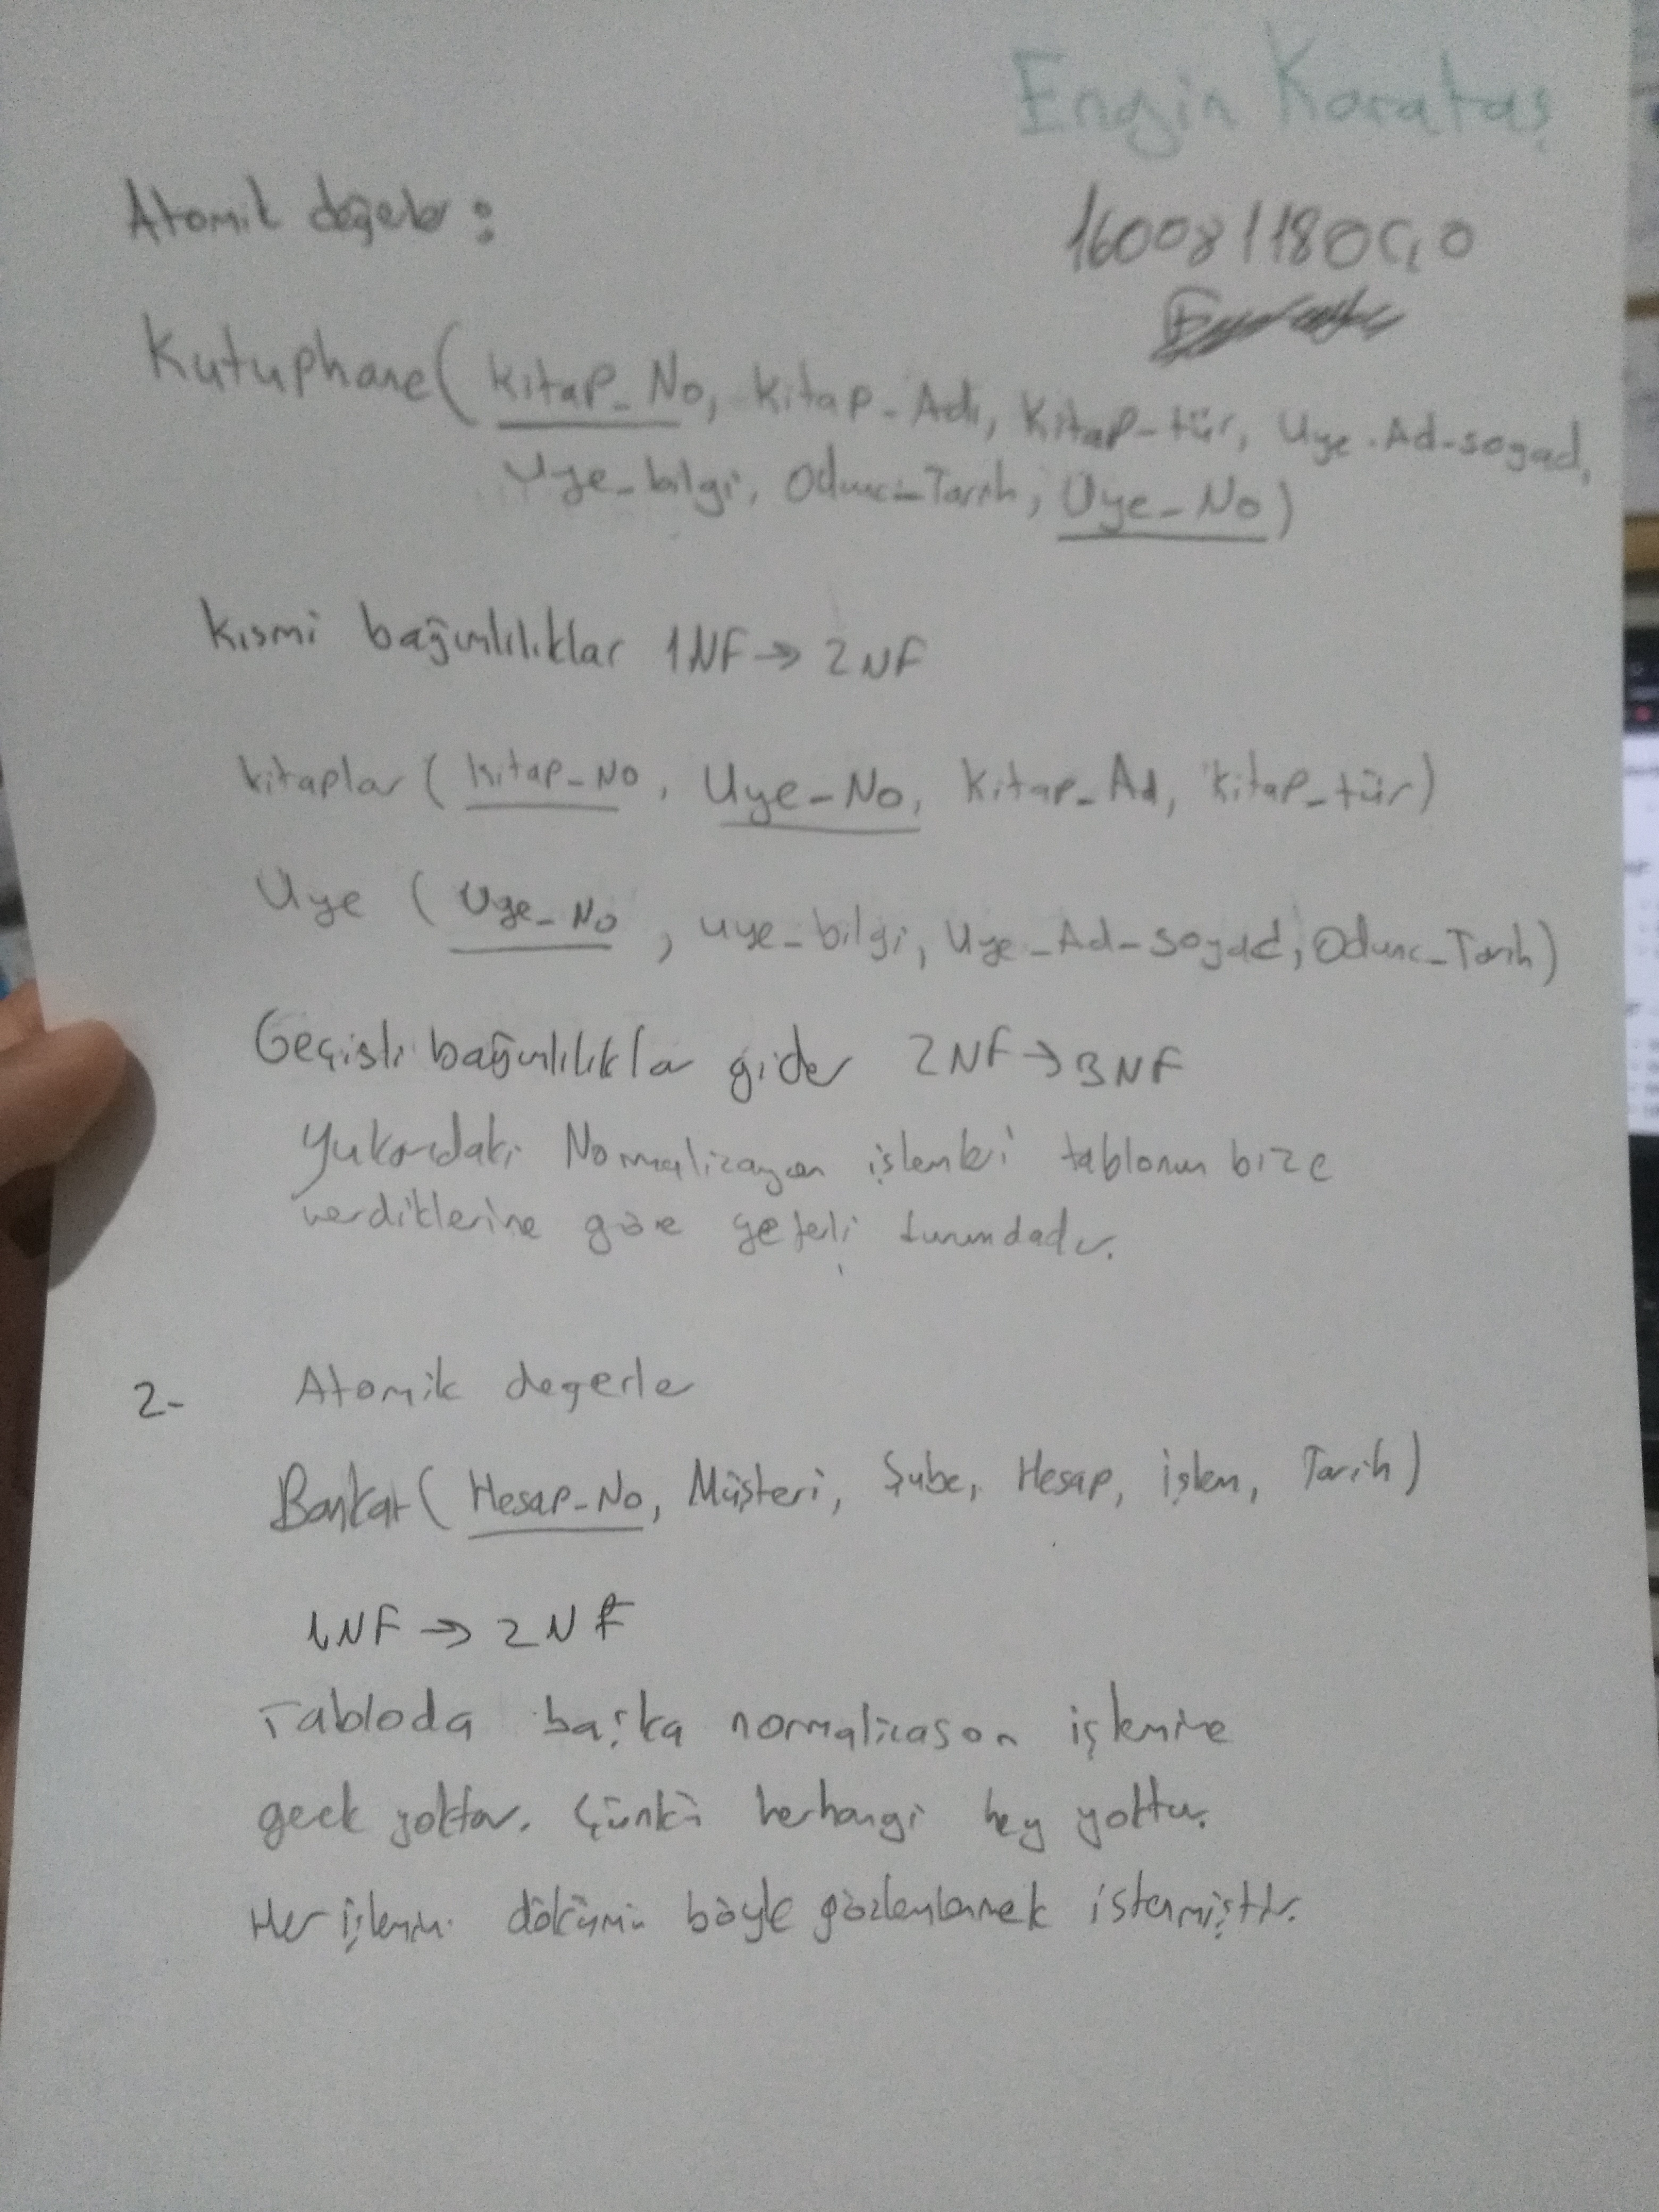 Engin Karataş
Atomik değerler :
Kutuphane( Kitap_No, Kitap_Adı, Kitap_tür, Uye_Ad_soyad,
Uye_bilgi, Odunc_Tarih, Uye_No)
Kısmi bağımlılıklar 1NF → 2NF
Kitaplar ( Kitap_No, Uye_No, Kitap_Ad, Kitap_tür)
Uye ( Uye_No, uye_bilgi, Uye_Ad_soyad, Odunc_Tarih)
Geçişli bağımlılıklar gider 2NF → 3NF
Yukarıdaki Normalizasyon işlemleri tablonun bize
verdiklerine göre yeterli durumdadır.
2- Atomik degerler
Banka( Hesap_No, Müşteri, Şube, Hesap, işlem, Tarih)
1NF → 2NF
Tabloda başka normalizason işlemine
gerek yoktur. Çünkü herhangi key yoktur.
Her işlemin dökümü böyle gözlemlenmek istenmiştir.